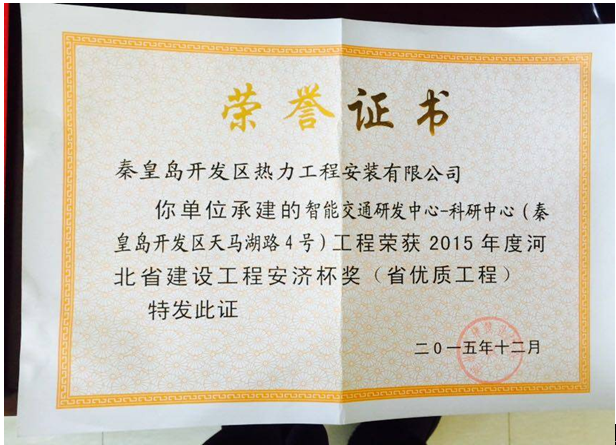 荣誉证书
秦皇岛开发区热力工程安装有限公司
你单位承建的智能交通研发中心-科研中心(秦
皇岛开发区天马湖路4号)工程荣获2015年度河
北省建设工程安济杯奖（省优质工程）
特发此证
二0一五年十二月